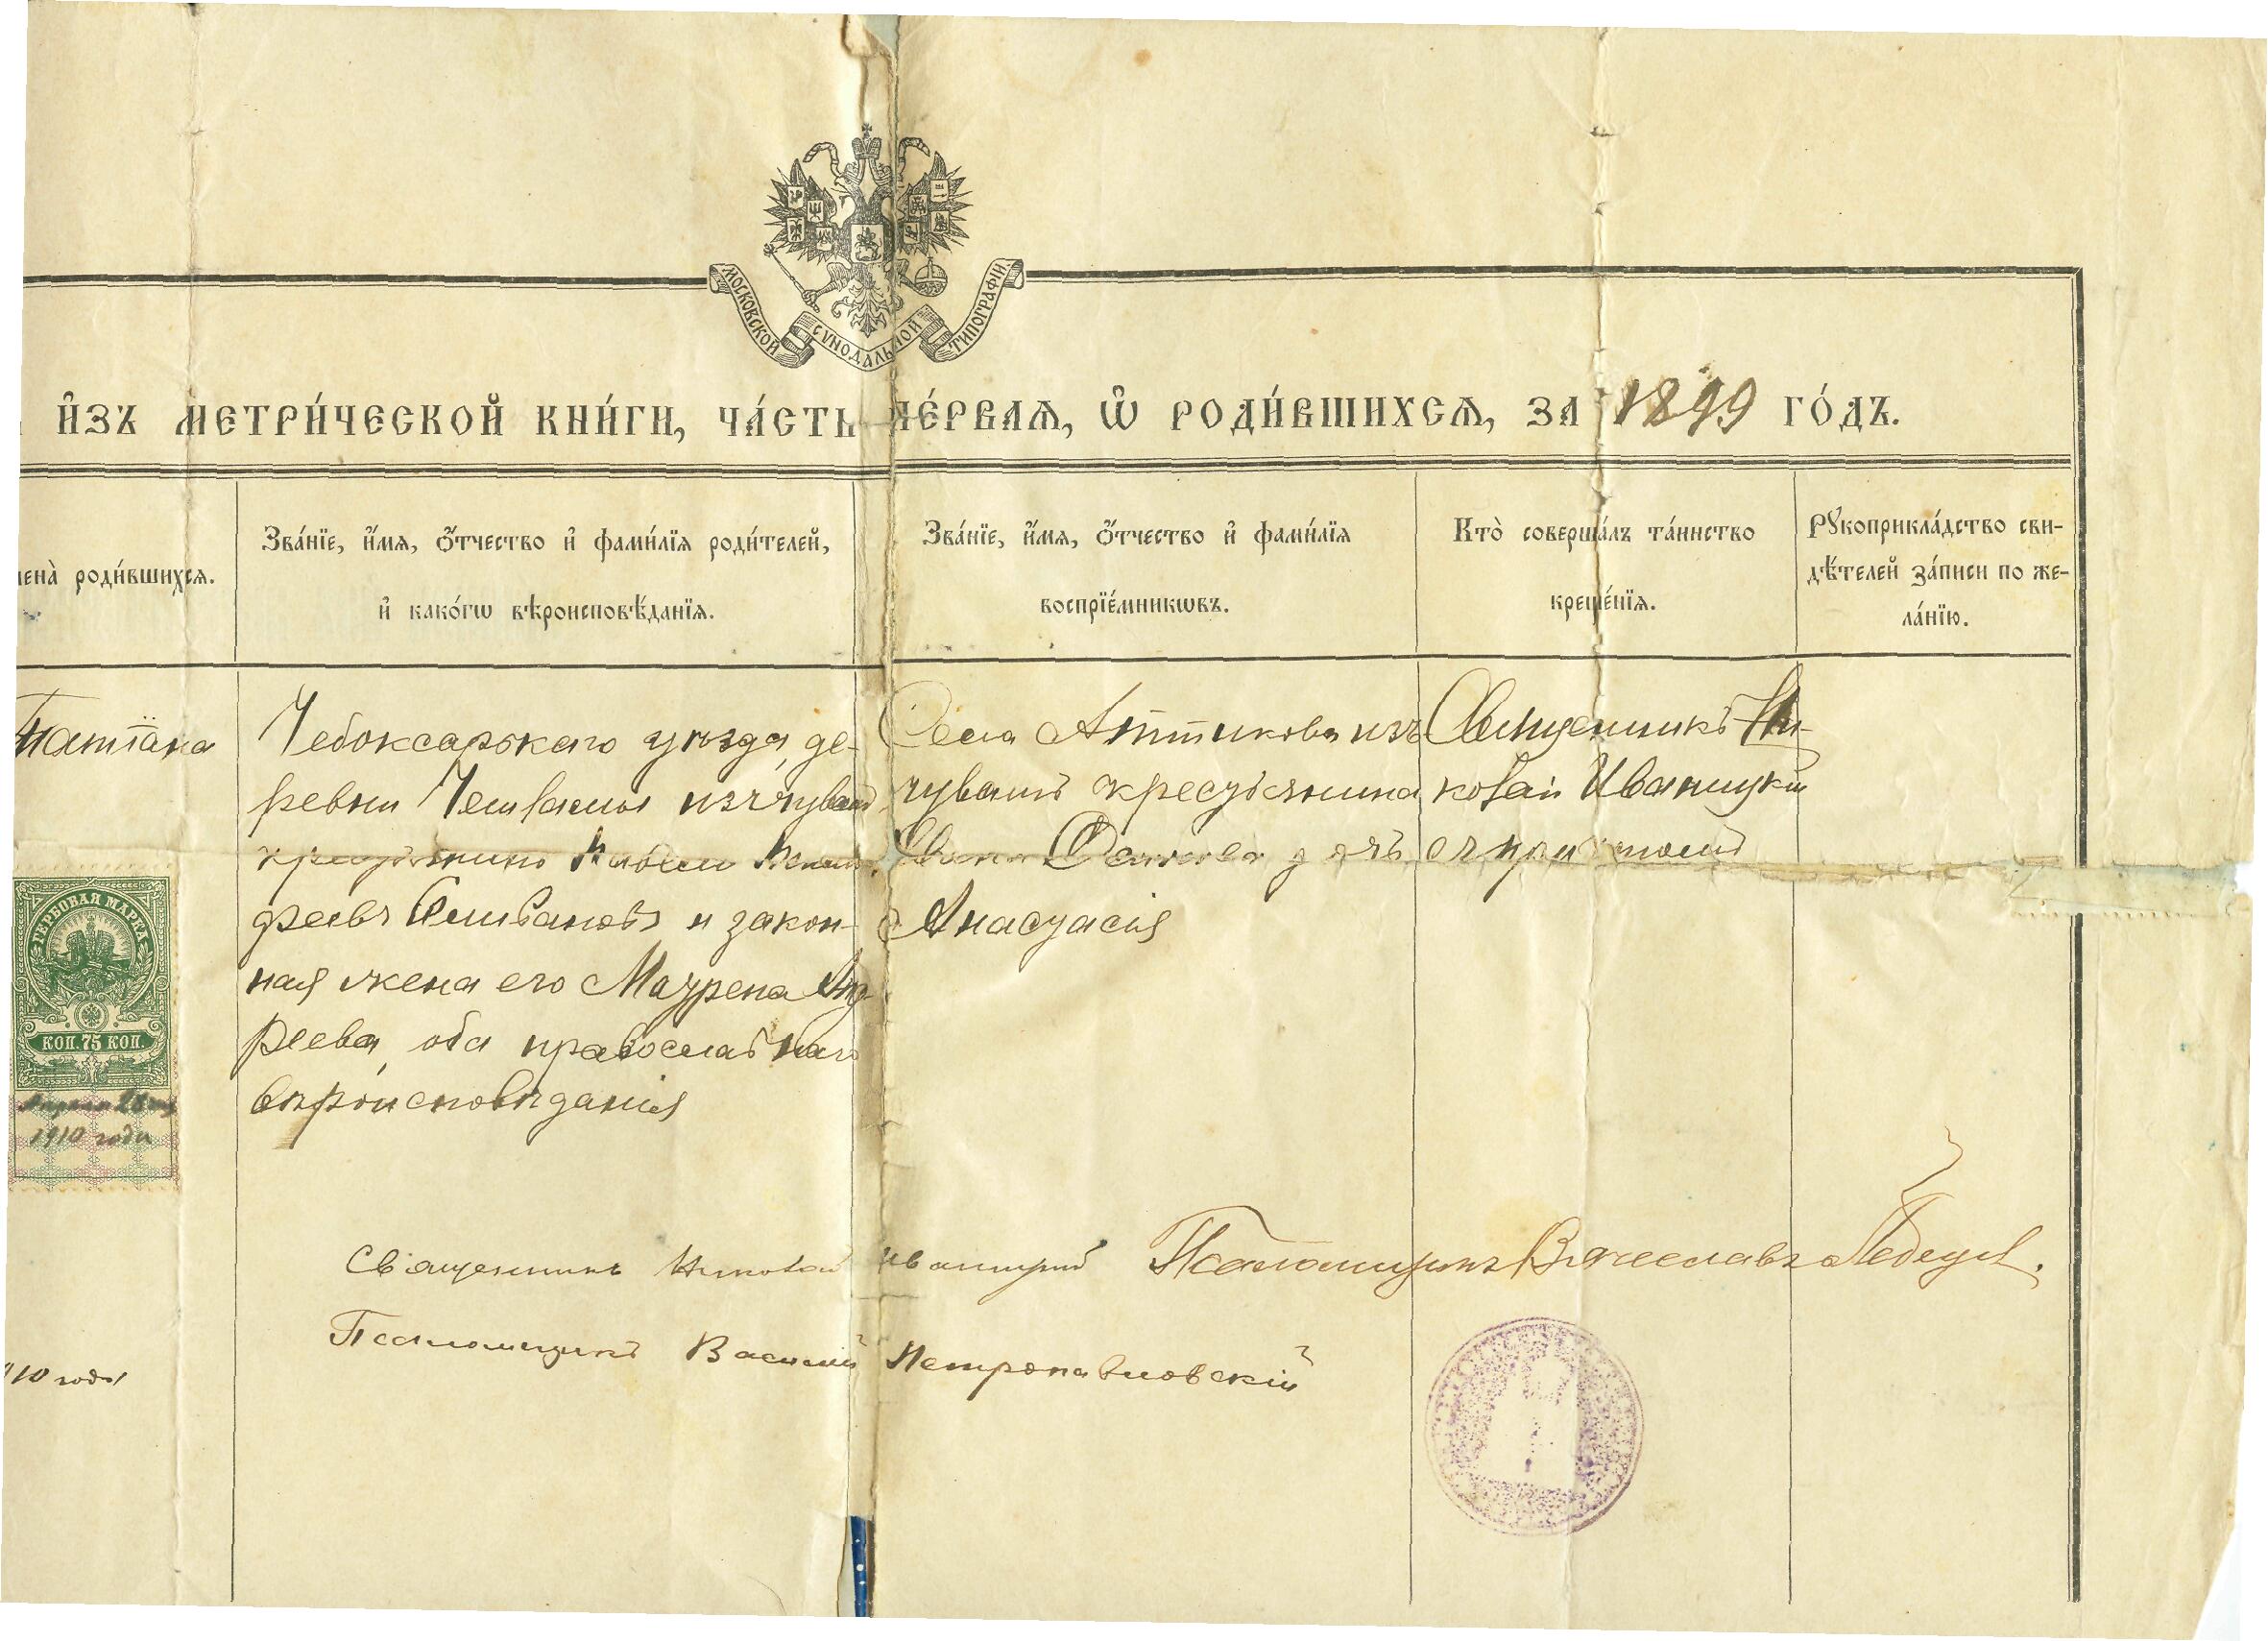 МОСКОВСКОЙ СѴНОДАЛЬНОЙ ТИПОГРАФІИ
и҆зъ метри́ческой кни́ги, ча́сть пе́рвая, ѿ роди́вшихся, за 1899 го́дъ.
роди́вшихся.
Зва́нїе, и҆́мя, ѻ҆́тчество и҆ фами́лїя роди́телей,
и҆ како́гѡ вѣроисповѣ́данїя.
Зва́нїе, и҆́мя, ѻ҆́тчество и҆ фами́лїя
воспрїе́мникѡвъ.
Кто̀ соверша́лъ та́инство
креще́нїя.
Рꙋкоприкла́дство сви-
дѣ́телей за́писи по же-
ла́нїю.
Татіана
Чебоксарскаго уѣзда, де-
ревни изъ чувашъ
крестьянинъ
фѣевъ и закон-
ная жена его Маурена Анд-
реева, оба православнаго
вѣроисповѣданія
Села Аттикова изъ
чувашъ крестьянина
дочь
Анасτасія
Священникъ Ни-
колай Иваницкій
съ причтомъ
ГЕРБОВАЯ МАРКА
КОП. 75 КОП.
Апрѣля
1910 года
Священникъ Николай Иваницкій
Псаломщикъ Вячеславъ Лебедевъ.
Псаломщикъ Василій Петропавловскій
10 года